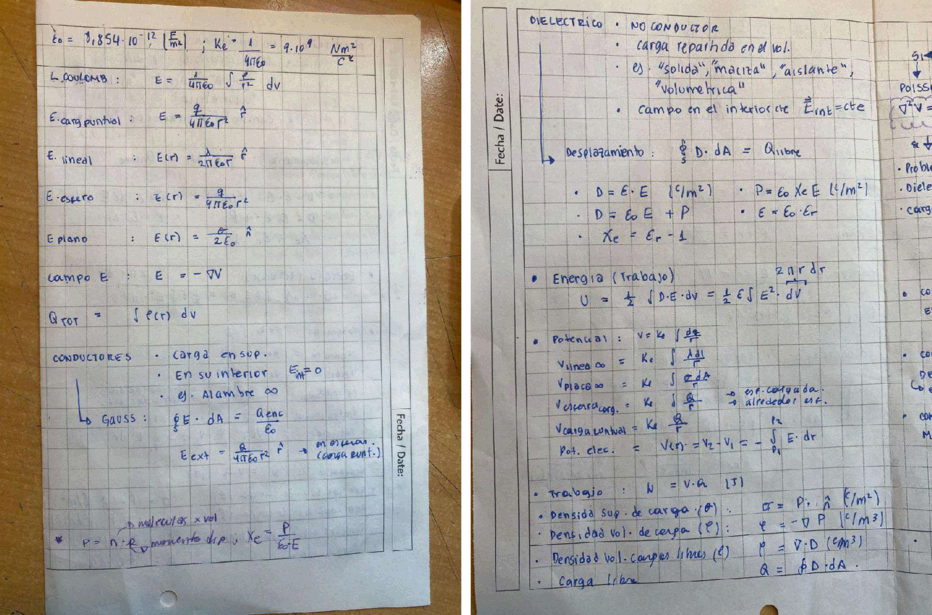 ε₀ = 8,854·10⁻¹², [F/m²] ; Ke = 1/4πε₀ = 9·10⁹ Nm²/C²
L. COULOMB : E = 1/4πε₀ ∫ ρ/r² dv
E. carg puntual : E = q/4πε₀r² r̂
E. lineal : E(r) = λ/2πε₀r r̂
E. esfera : E(r) = q/4πε₀r²
E plano : E(r) = σ/2ε₀ n̂
campo E : E = -∇V
Q TOT = ∫ ρ(r) dv
CONDUCTORES · carga en sup.
· En su interior E int = 0
· ej. Alambre ∞
GAUSS : ∮s E · dA = Q enc/ε₀
E ext = Q/4πε₀r² r̂ → en esferas. (carga punt.)
→ moléculas x vol
* P = n · p → momento dip. ; Xe = P/ε₀·E
Fecha / Date:
Fecha / Date:
DIELECTRICO · NO CONDUCTOR
· carga repartida en el vol.
· ej. "solida", "maciza", "aislante",
"volumetrica"
· campo en el interior cte E int = cte
Desplazamiento : ∮s D · dA = Q libre
· D = ε · E (C/m²) · P = ε₀ Xe E (C/m²)
· D = ε₀ E + P · ε = ε₀ · εr
· Xe = εr - 1
• Energia (Trabajo) 2πr dr
U = 1/2 ∫ D·E·dv = 1/2 ε ∫ E² · dV
• Potencial : V = Ke ∫ dq/r
V linea ∞ = Ke ∫ λdl/r
V placa ∞ = Ke ∫ σ dA/r
V esfera carg. = Ke ∫ Q/r → esf. cargada.
→ alrededor esf.
V carga puntual = Ke Q/r
Pot. elec. = V(r) = V₂ - V₁ = - ∫ P₁ P₂ E · dr
• Trabajo : W = V·Q [J]
• Densidad sup. de carga (σ) : σ = P · n̂ (C/m²)
• Densidad vol. de carga (ρ) : ρ = -∇ P (C/m³)
Densidad vol. cargas libres (ρ) ρ = ∇·D (C/m³)
· Carga libre Q = ∮ D · dA .
Si
POISS
∇²V =
· Probl
· Diele
· carga